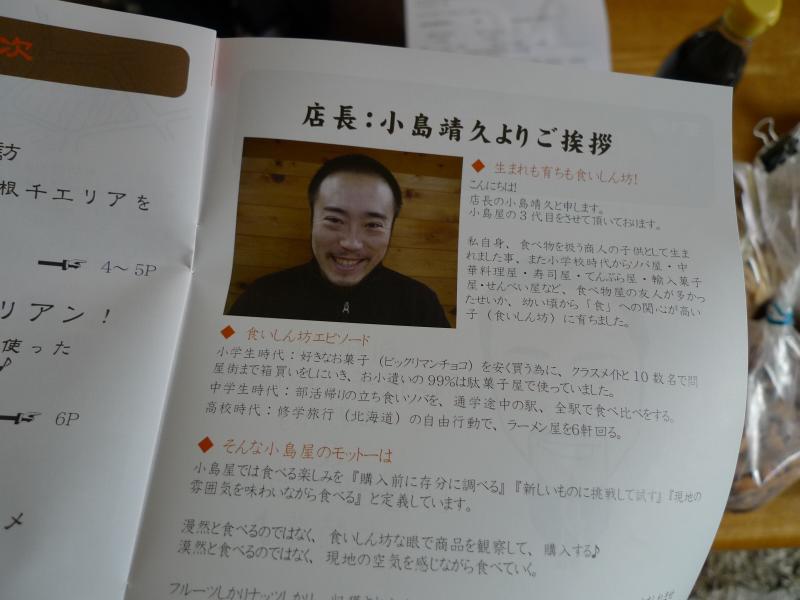 次
訪
根千エリアを
4～5P
リアン！
使った
♪
6P
メ
店長：小島靖久よりご挨拶
◆ 生まれも育ちも食いしん坊！
こんにちは！
店長の小島靖久と申します。
小島屋の3代目をさせて頂いております。
私自身、食べ物を扱う商人の子供として生ま
れました事、また小学校時代からソバ屋・中
華料理屋・寿司屋・てんぷら屋・輸入菓子
屋・せんべい屋など、食べ物屋の友人が多かっ
たせいか、幼い頃から「食」への関心が高い
子（食いしん坊）に育ちました。
◆ 食いしん坊エピソード
小学生時代：好きなお菓子（ビックリマンチョコ）を安く買う為に、クラスメイトと10数名で問
屋街まで箱買いをしにいき、お小遣いの99%は駄菓子屋で使っていました。
中学生時代：部活帰りの立ち食いソバを、通学途中の駅、全駅で食べ比べをする。
高校時代：修学旅行（北海道）の自由行動で、ラーメン屋を6軒回る。
◆ そんな小島屋のモットーは
小島屋では食べる楽しみを『購入前に存分に調べる』『新しいものに挑戦して試す』『現地の
雰囲気を味わいながら食べる』と定義しています。
漫然と食べるのではなく、食いしん坊な眼で商品を観察して、購入する♪
漠然と食べるのではなく、現地の空気を感じながら食べていく。